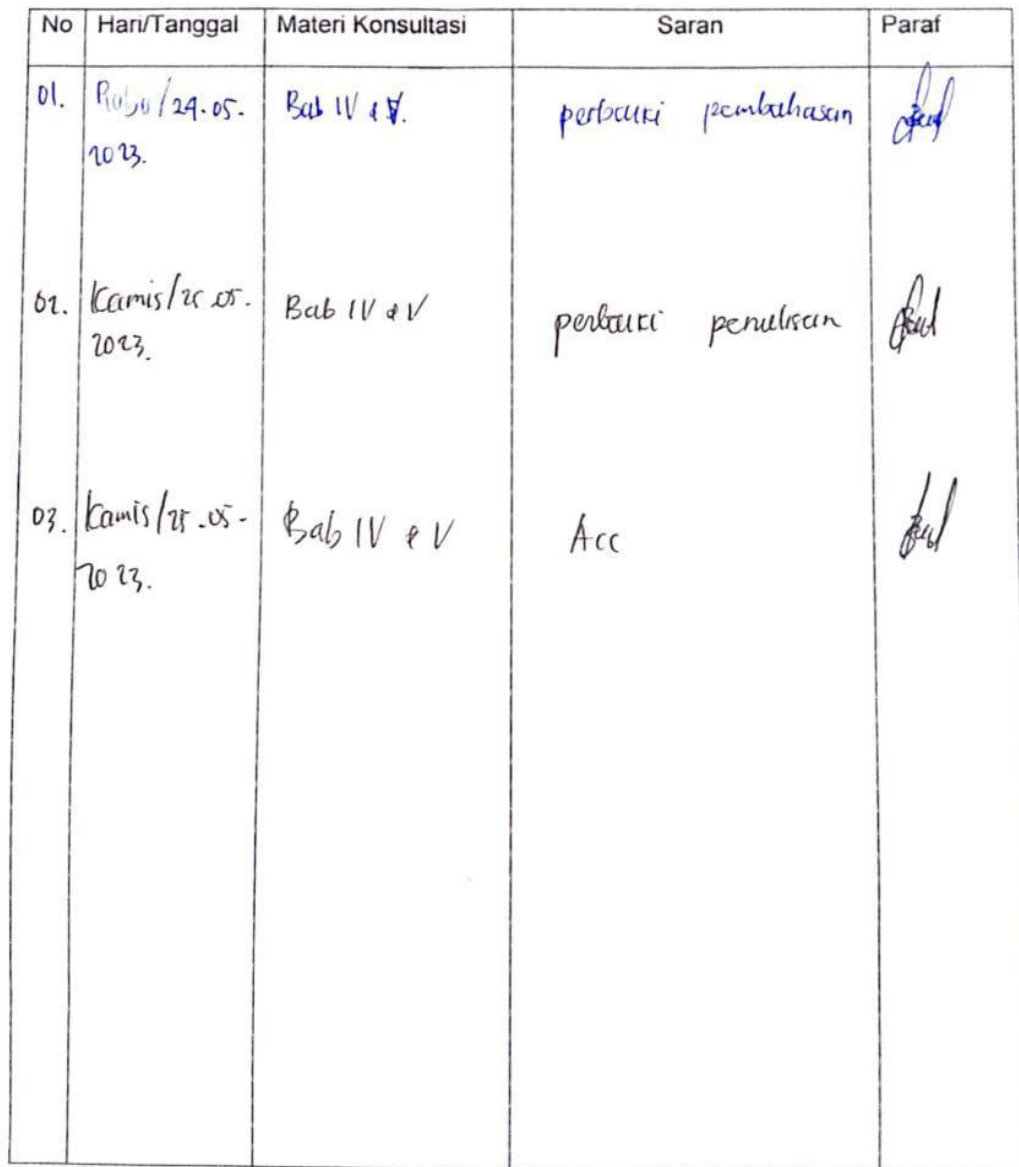 No Hari/Tanggal Materi Konsultasi Saran Paraf
01. Rabu/24.05. Bab IV & V. perbaiki pembahasan
2023.
02. Kamis/25.05. Bab IV & V perbaiki penulisan
2023.
03. Kamis/25.05- Bab IV & V Acc
2023.